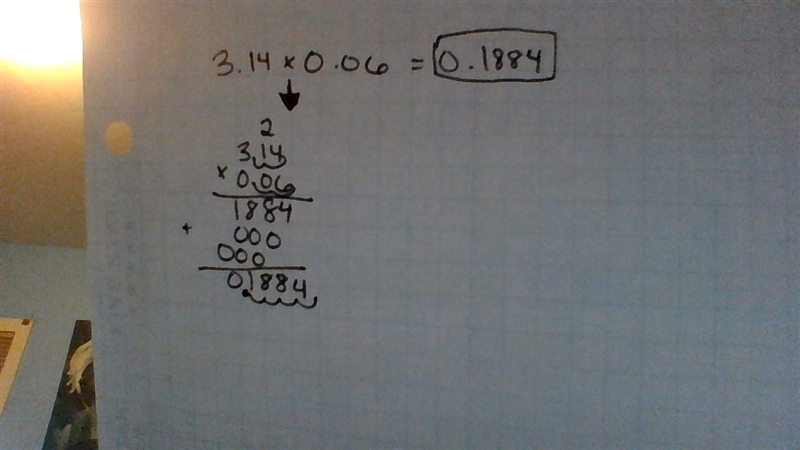 3.14 × 0.06 = 0.1884
2
3.14
× 0.06
1884
+ 000
000
01884